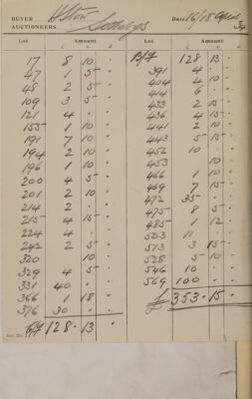 BUYER H Stow
AUCTIONEERS Sothebys
DATE 16/18 April 34
Lot Amount
£ s. d.
17 8 10 .
47 1 5 .
48 2 5 .
109 3 5 .
121 4 . .
155 1 10 .
191 7 10 .
194 2 10 .
196 1 10 .
200 4 5 .
201 2 10 .
214 2 . .
215 4 15 .
224 4 . .
242 2 5 .
320 10 .
329 4 5 .
331 40 . .
366 1 18 .
376 30 . .
C/f 128 . 13 .
Lot Amount
£ s. d.
B/f 128 13 .
391 4 . .
404 4 10 .
414 6 . .
433 2 15 .
436 4 15 .
441 2 10 .
443 5 15 .
452 10 . .
453 10 .
466 1 10 .
469 7 15 .
472 35 . .
475 8 5 .
485 1 12 .
503 11 . .
513 3 15 .
528 5 10 .
546 10 . .
569 100 . .
£ 353 . 15 .